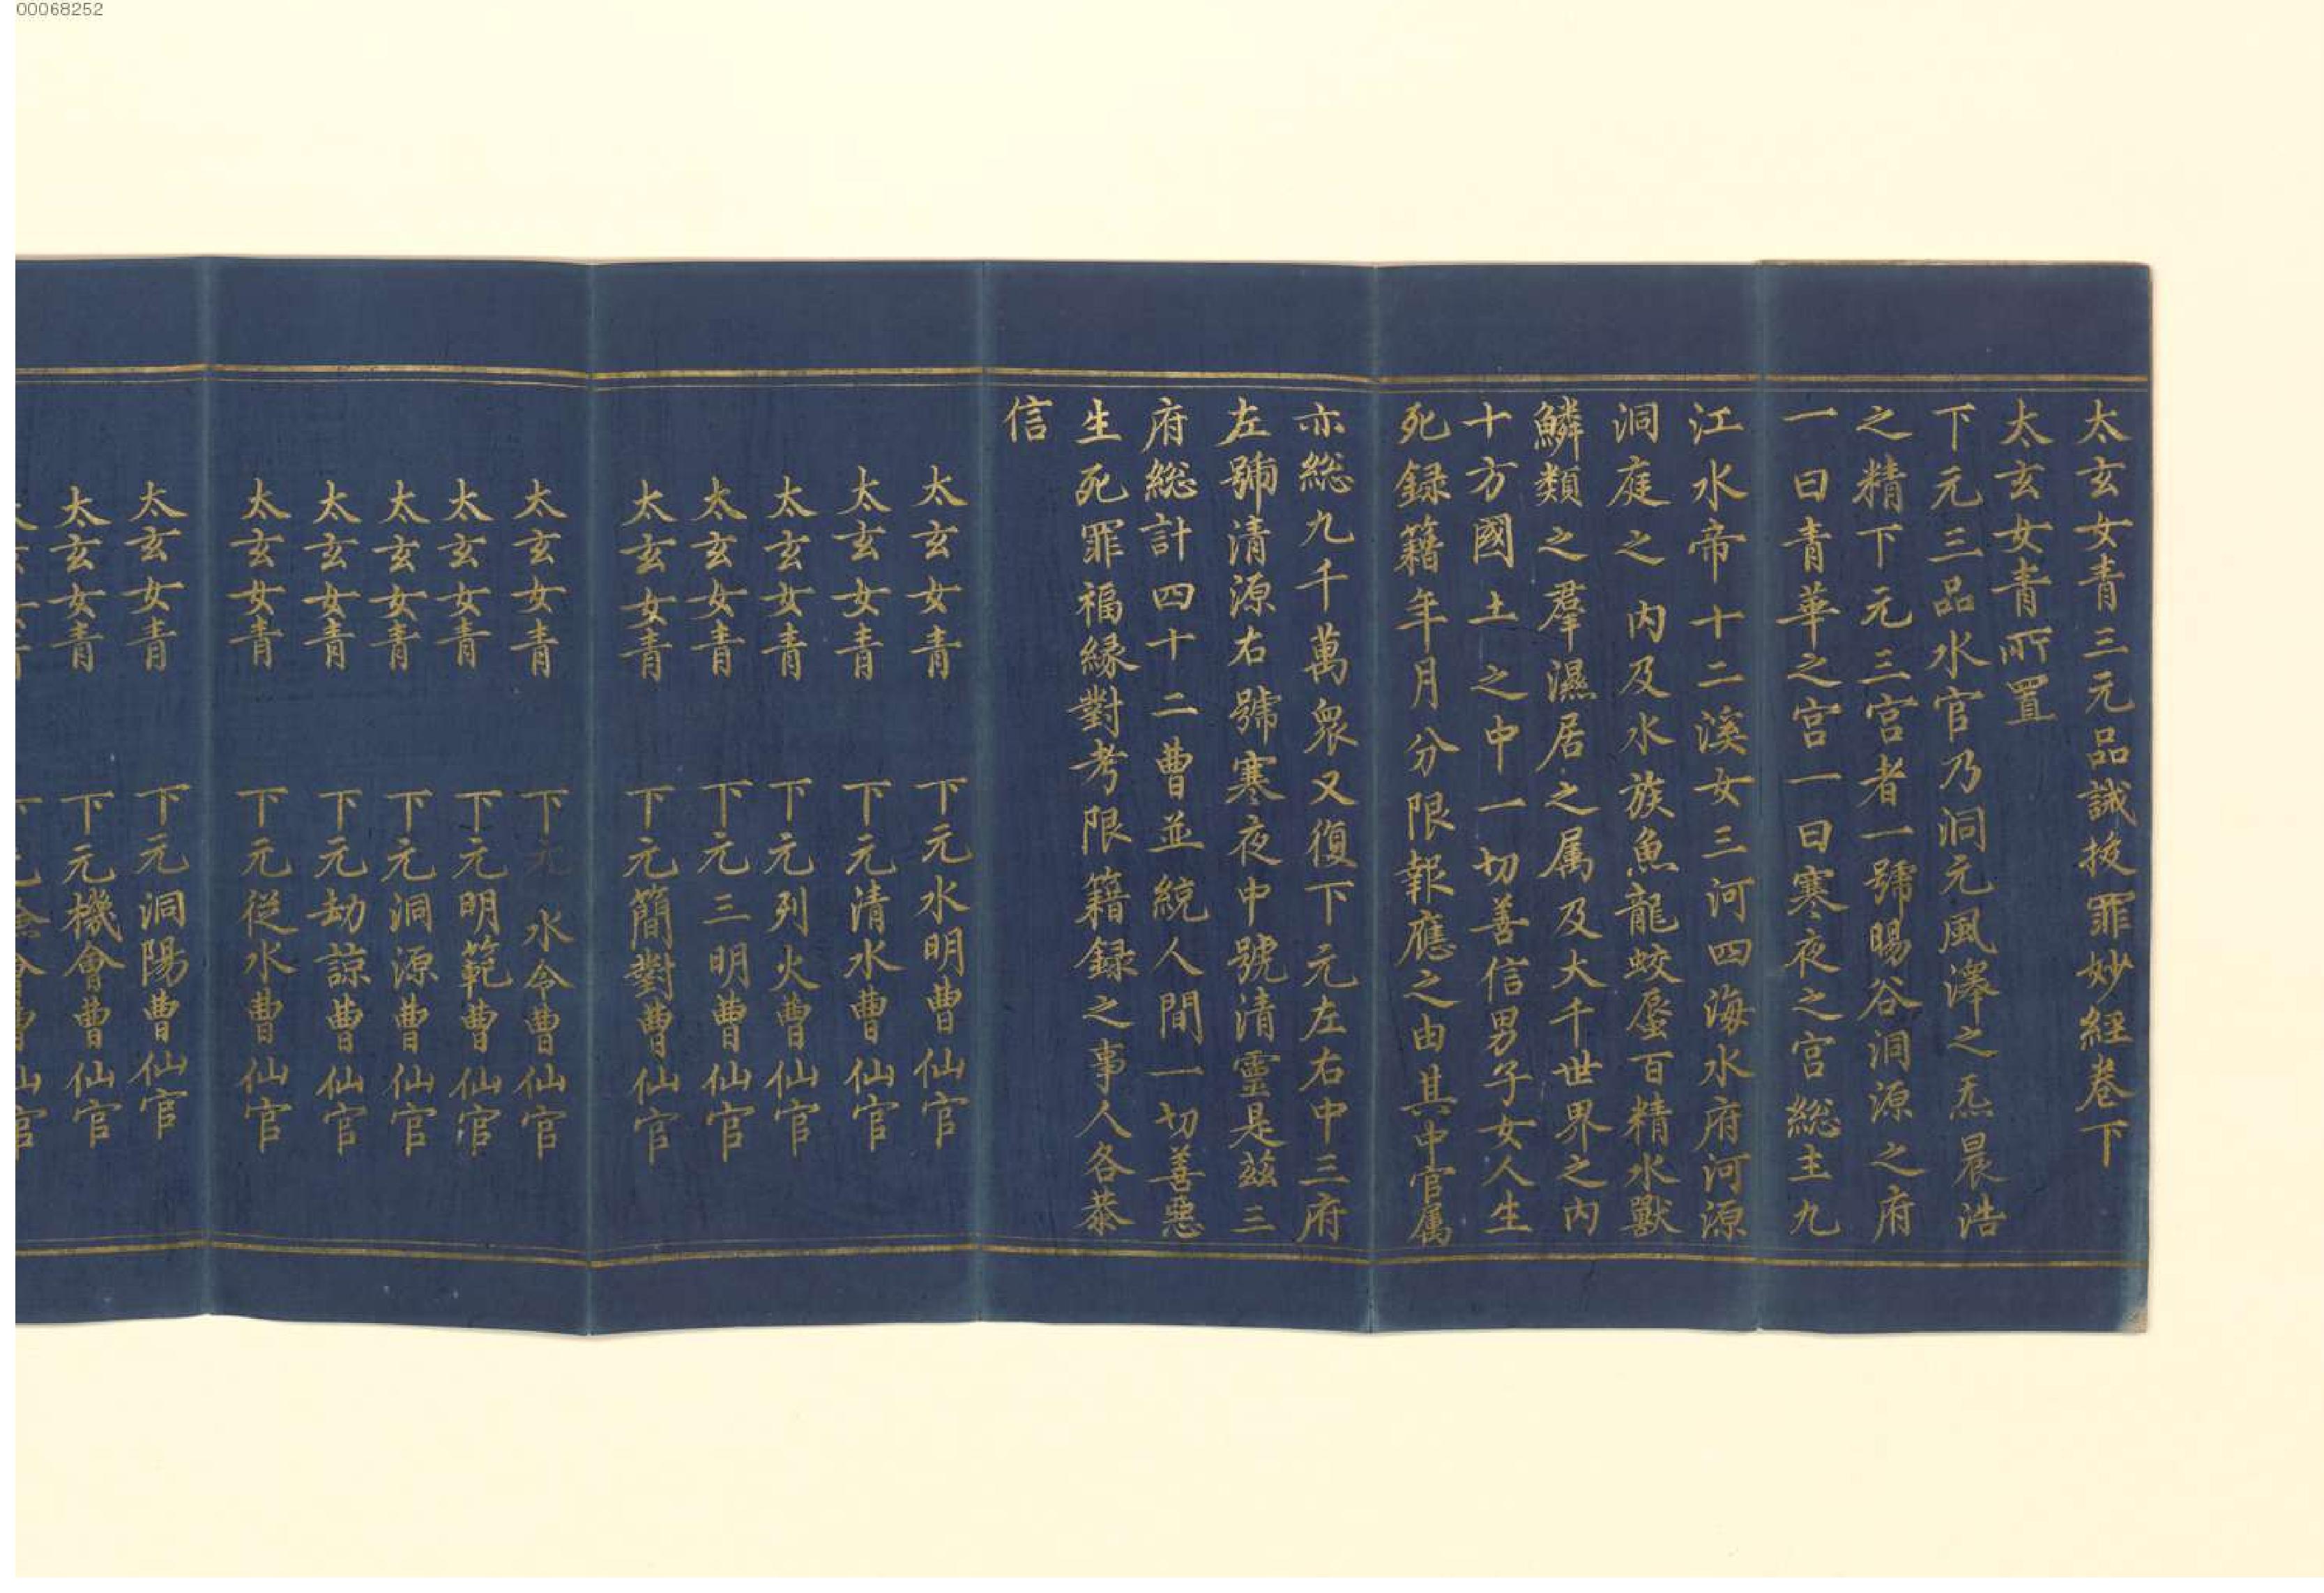 00068252
太玄女青三元品誡拔罪妙經卷下
太玄女青所置
下元三品水官乃洞元風澤之炁晨浩
之精下元三宮者一號暘谷洞源之府
一曰青華之宮一曰寒夜之宮総主九
江水帝十二溪女三河四海水府河源
洞庭之內及水族魚龍蛟蜃百精水獸
鱗類之羣濕居之属及大千世界之內
十方國土之中一切善信男子女人生
死録籍年月分限報應之由其中官属
亦総九千萬衆又復下元左右中三府
左號清源右號寒夜中號清靈是茲三
府総計四十二曹並統人間一切善惡
生死罪福緣對考限籍録之事人各恭
信
太玄女青 下元水明曹仙官
太玄女青 下元清水曹仙官
太玄女青 下元列火曹仙官
太玄女青 下元三明曹仙官
太玄女青 下元簡對曹仙官
太玄女青 下元水令曹仙官
太玄女青 下元明範曹仙官
太玄女青 下元洞源曹仙官
太玄女青 下元劫諒曹仙官
太玄女青 下元從水曹仙官
太玄女青 下元洞陽曹仙官
太玄女青 下元機會曹仙官